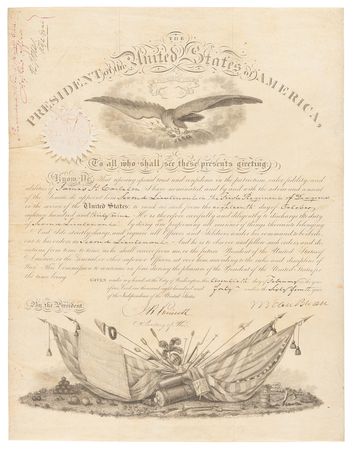 THE
PRESIDENT of the United States of AMERICA,
To all who shall see these presents greeting:
Know Ye, That reposing special trust and confidence in the patriotism, valor, fidelity and
abilities of James H. I have nominated, and by and with the advice and consent
of the Senate do appoint him Second Lieutenant in the Regiment of Dragoons
in the service of the United States: to rank as such from the day of October
eighteen hundred and thirty nine. He is therefore carefully and diligently to discharge the duty
of Second Lieutenant by doing and performing all manner of things thereunto belonging.
And I do strictly charge, and require all Officers and Soldiers under his command to be obedi-
ent to his orders as Second Lieutenant. And he is to observe and follow such orders and di-
rections from time to time, as he shall receive from me or the future President of the United States of
America, or the General or other superior Officers set over him, according to the rules and discipline of
War. This Commission to continue in force during the pleasure of the President of the United States for
the time being.
GIVEN under my hand at the City of Washington this day of February in the
year of our Lord one thousand eight hundred and forty and in the Sixty fourth year
of the Independence of the United States.
By the President,
M Van Buren
J R Poinsett
Secretary of War.